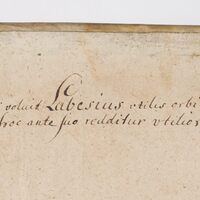 voluit Labesius vtilis orbi
hoc ante suo redditur vtilior